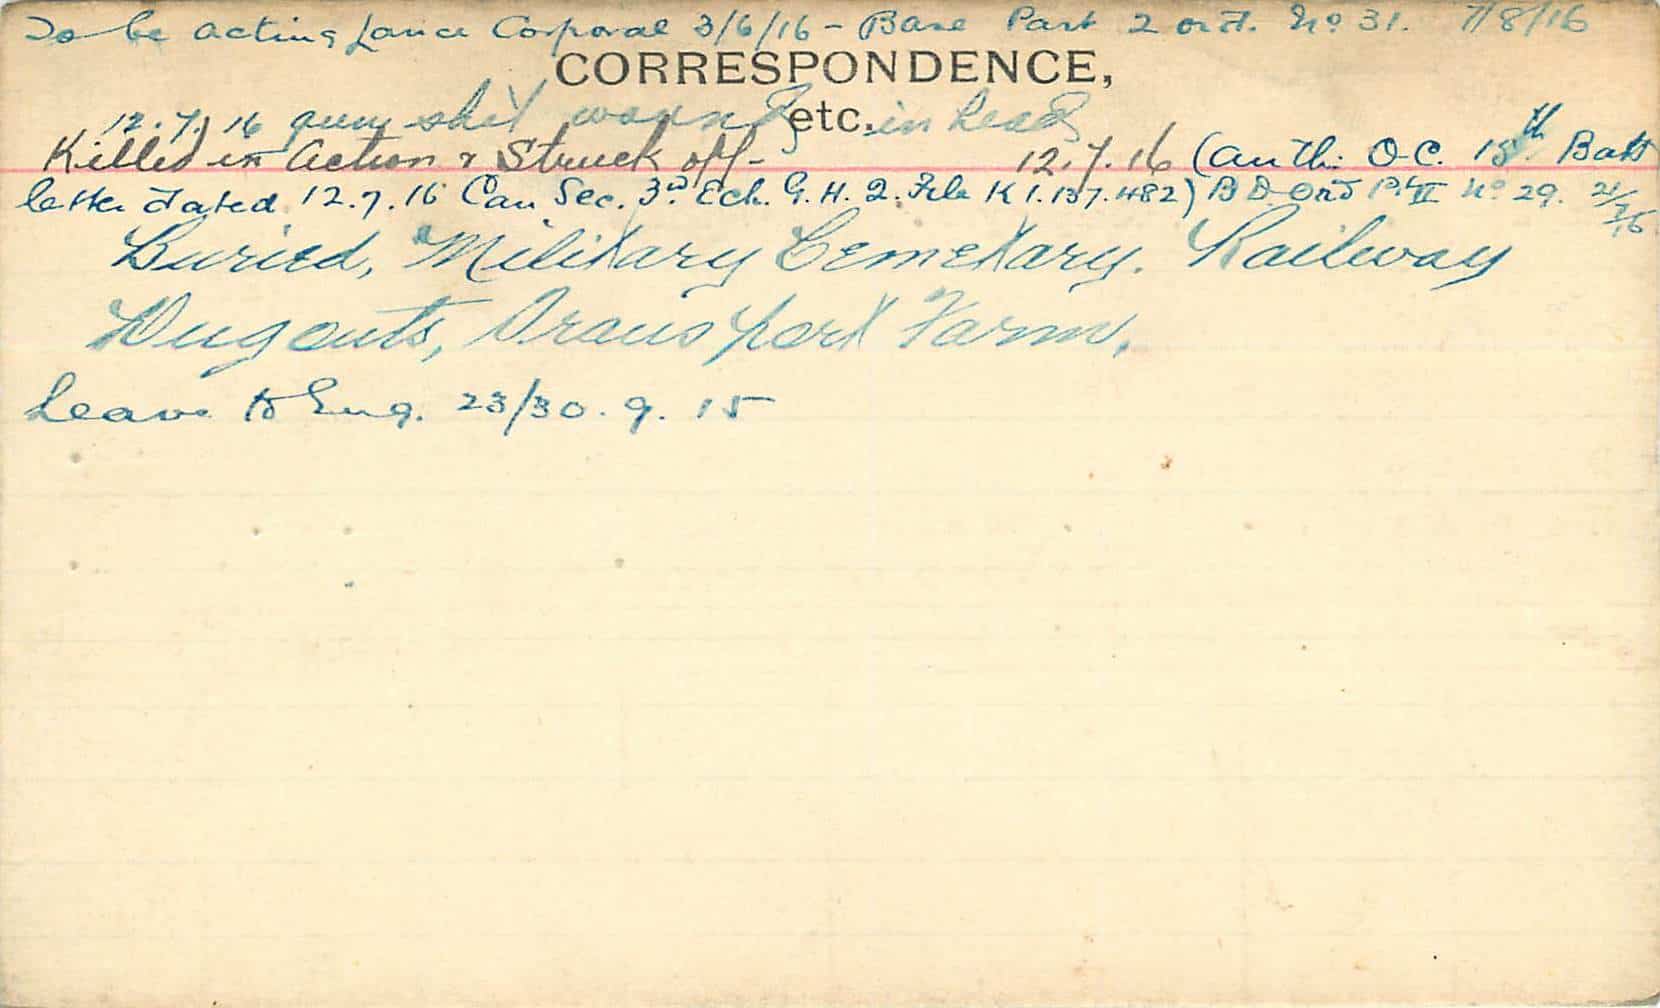 To be acting Lance Corporal 3/6/16 - Base Part 2 ord. No 31. 7/8/16
CORRESPONDENCE,
etc.
12.7.16 gun shot wound in head
Killed in Action & Struck off - 12.7.16 (Auth: O.C. 15th Batt
letter dated 12.7.16 Can Sec. 3rd Ech. G.H.Q. File K1.137.482) B D Ord Pt II No 29. 21/7/16
Buried, Military Cemetary. Railway
Dugouts, Transport Farm.
Leave to Eng. 23/30.9.15